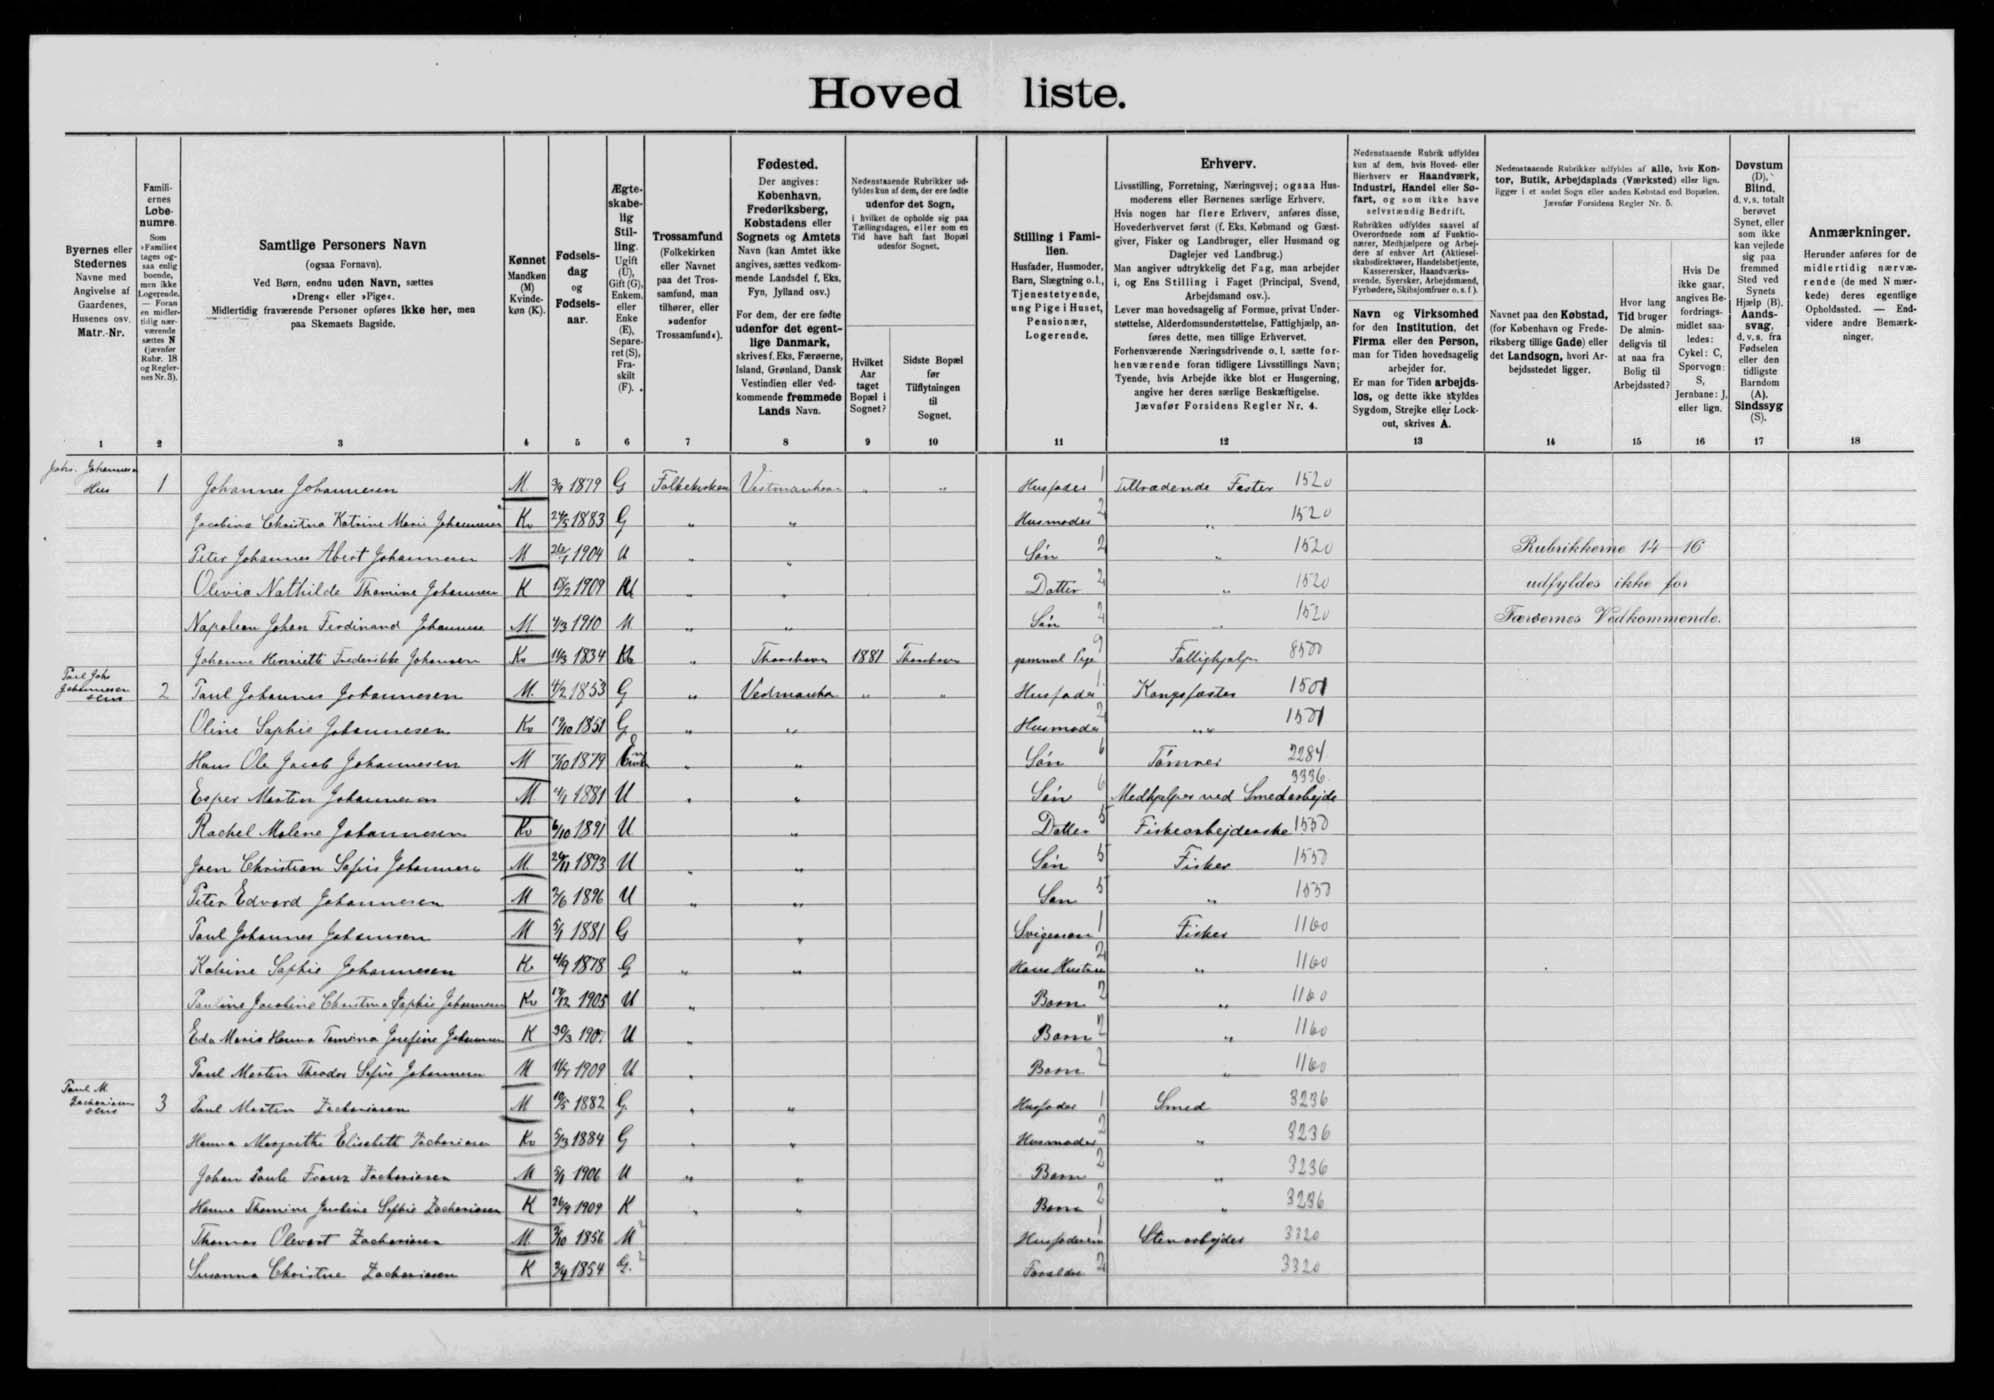 Hoved liste.
Byernes eller Stedernes Navne med Angivelse af Gaardenes, Husenes osv. Matr.-Nr.
Familiernes Løbenumre. Som »Familie« tages ogsaa enlig boende, men ikke Logerende. — Foran en midlertidig nærværende sættes N (jævnfør Rubr. 18 og Reglernes Nr. 3).
Samtlige Personers Navn (ogsaa Fornavn). Ved Børn, endnu uden Navn, sættes »Dreng« eller »Pige«. Midlertidig fraværende Personer opføres ikke her, men paa Skemaets Bagside.
Kønnet Mandkøn (M) Kvindekøn (K).
Fødselsdag og Fødselsaar.
Ægteskabelig Stilling. Ugift (U), Gift (G), Enkem. eller Enke (E), Separeret (S), Fraskilt (F).
Trossamfund (Folkekirken eller Navnet paa det Trossamfund, man tilhører, eller »udenfor Trossamfund«).
Fødested. Der angives: København, Frederiksberg, Købstadens eller Sognets og Amtets Navn (kan Amtet ikke angives, sættes vedkommende Landsdel f. Eks. Fyn, Jylland osv.) For dem, der ere fødte udenfor det egentlige Danmark, skrives f. Eks. Færøerne, Island, Grønland, Dansk Vestindien eller vedkommende fremmede Lands Navn.
Nedenstaaende Rubrikker udfyldes kun af dem, der ere fødte udenfor det Sogn, i hvilket de opholde sig paa Tællingsdagen, eller som en Tid have haft fast Bopæl udenfor Sognet.
Hvilket Aar taget Bopæl i Sognet?
Sidste Bopæl før Tilflytningen til Sognet.
Stilling i Familien. Husfader, Husmoder, Barn, Slægtning o. l., Tjenestetyende, ung Pige i Huset, Pensionær, Logerende.
Erhverv. Livsstilling, Forretning, Næringsvej; ogsaa Husmoderens eller Børnenes særlige Erhverv. Hvis nogen har flere Erhverv, anføres disse, Hovederhvervet først (f. Eks. Købmand og Gæstgiver, Fisker og Landbruger, eller Husmand og Daglejer ved Landbrug.) Man angiver udtrykkelig det Fag, man arbejder i, og Ens Stilling i Faget (Principal, Svend, Arbejdsmand osv.). Lever man hovedsagelig af Formue, privat Understøttelse, Alderdomsunderstøttelse, Fattighjælp, anføres dette, men tillige Erhvervet. Forhenværende Næringsdrivende o. l. sætte forhenværende foran tidligere Livsstillings Navn; Tyende, hvis Arbejde ikke blot er Husgerning, angive her deres særlige Beskæftigelse. Jævnfør Forsidens Regler Nr. 4.
Nedenstaaende Rubrik udfyldes kun af dem, hvis Hoved- eller Bierhverv er Haandværk, Industri, Handel eller Søfart, og som ikke have selvstændig Bedrift. Rubrikken udfyldes saavel af Overordnede som af Funktionærer, Medhjælpere og Arbejdere af enhver Art (Aktieselskabsdirektører, Handelsbetjente, Kasserersker, Haandværkssvende, Syersker, Arbejdsmænd, Fyrbødere, Skibsjomfruer o. s. f.).
Navn og Virksomhed for den Institution, det Firma eller den Person, man for Tiden hovedsagelig arbejder for. Er man for Tiden arbejdsløs, og dette ikke skyldes Sygdom, Strejke eller Lockout, skrives A.
Nedenstaaende Rubrikker udfyldes af alle, hvis Kontor, Butik, Arbejdsplads (Værksted) eller lign. ligger i et andet Sogn eller anden Købstad end Bopælen. Jævnfør Forsidens Regler Nr. 5.
Navnet paa den Købstad, (for København og Frederiksberg tillige Gade) eller det Landsogn, hvori Arbejdsstedet ligger.
Hvor lang Tid bruger De almindeligvis til at naa fra Bolig til Arbejdssted?
Hvis De ikke gaar, angives Befordringsmidlet saaledes: Cykel: C, Sporvogn: S, Jernbane: J, eller lign.
Døvstum (D), Blind, d. v. s. totalt berøvet Synet, eller som ikke kan vejlede sig paa fremmed Sted ved Synets Hjælp (B). Aandssvag, d. v. s. fra Fødselen eller den tidligste Barndom (A). Sindssyg (S).
Anmærkninger. Herunder anføres for de midlertidig nærværende (de med N mærkede) deres egentlige Opholdssted. — Endvidere andre Bemærkninger.
1 2 3 4 5 6 7 8 9 10 11 12 13 14 15 16 17 18
Johs. Johannesen Hus 1 Johannes Johannesen M 1879 G Folkekirken Vestmanhavn " " Husfader 1 Tiltrædende Fæster 1520
Jacobina Christina Katrine Marie Johannesen Kv 24/5 1883 G " " Husmoder 2 " 1520
Peter Johannes Abert Johannesen M 26/1 1904 U " " Søn 2 " 1520
Olivia Nathilde Thomine Johannesen K 1909 U " " Datter 2 " 1520
Napoleon Johan Ferdinand Johannesen M 1910 U " " Søn 2 " 1520
Rubrikkerne 14-16
udfyldes ikke for
Færøernes Vedkommende.
Johanne Henriette Frederikke Johansen Kv 1834 " Thorshavn 1881 Thorshavn gammel Pige 9 Fattighjælp 8500
Paul Johs Johannesen Hus 2 Paul Johannes Johannesen M. 4/2 1853 G " Vestmanhavn " " Husfader 1 Kongsfæster 1501
Oline Sophie Johannesen Kv 1851 G " " Husmoder 2 " 1501
Hans Ole Jacob Johannesen M 1879 " " Søn 6 Tømrer 2284
Esper Morten Johannesen M 1881 U " " Søn 6 Medhjælper ved Smedearbejde 3336
Rachel Malene Johannesen Kv 6/10 1891 U " Datter 5 Fiskearbejderske 1550
Joen Christian Sofus Johannesen M 24/11 1893 U " " Søn 5 Fisker 1550
Peter Edvard Johannesen M 1896 U " " Søn 5 " 1550
Paul Johannes Johannesen M 5/1 1881 G " Svigersøn 1 Fisker 1160
Katrine Sophie Johannesen Kv 4/9 1878 G " " Hans Hustru 2 " 1160
Pauline Jacobine Christina Sophie Johannesen Kv 1905 U " Barn 2 " 1160
Eda Marie Hanna Tomina Josefine Johannesen K 30/3 U " Barn 2 " 1160
Paul Morten Theodor Sofus Johannesen M 1909 U " Barn 2 " 1160
Paul M. Zachariasen Hus 3 Paul Morten Zachariasen M 10/5 1882 G " " Husfader 1 Smed 3236
Hanna Margrethe Elisabeth Zachariasen Kv 5/3 1884 G " " Husmoder 2 " 3236
Johan Paule Franz Zachariasen M 5/1 1906 U " " Barn 2 " 3236
Hanna Thomine Jacobine Sophie Zachariasen K 26/9 1909 K " " Barn 2 " 3236
Thomas Olevert Zachariasen M 1856 1 Stenarbejder 3320
Susanna Christine Zachariasen K 1854 G. 2 Forældre 2 3320